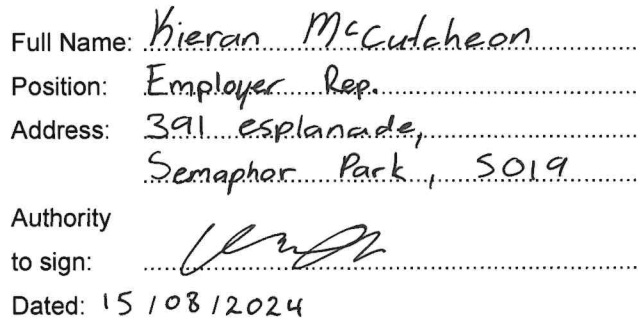 Full Name: Kieran McCutcheon
Position: Employer Rep.
Address: 391 esplanade,
Semaphor Park, 5019
Authority
to sign:
Dated: 15/08/2024